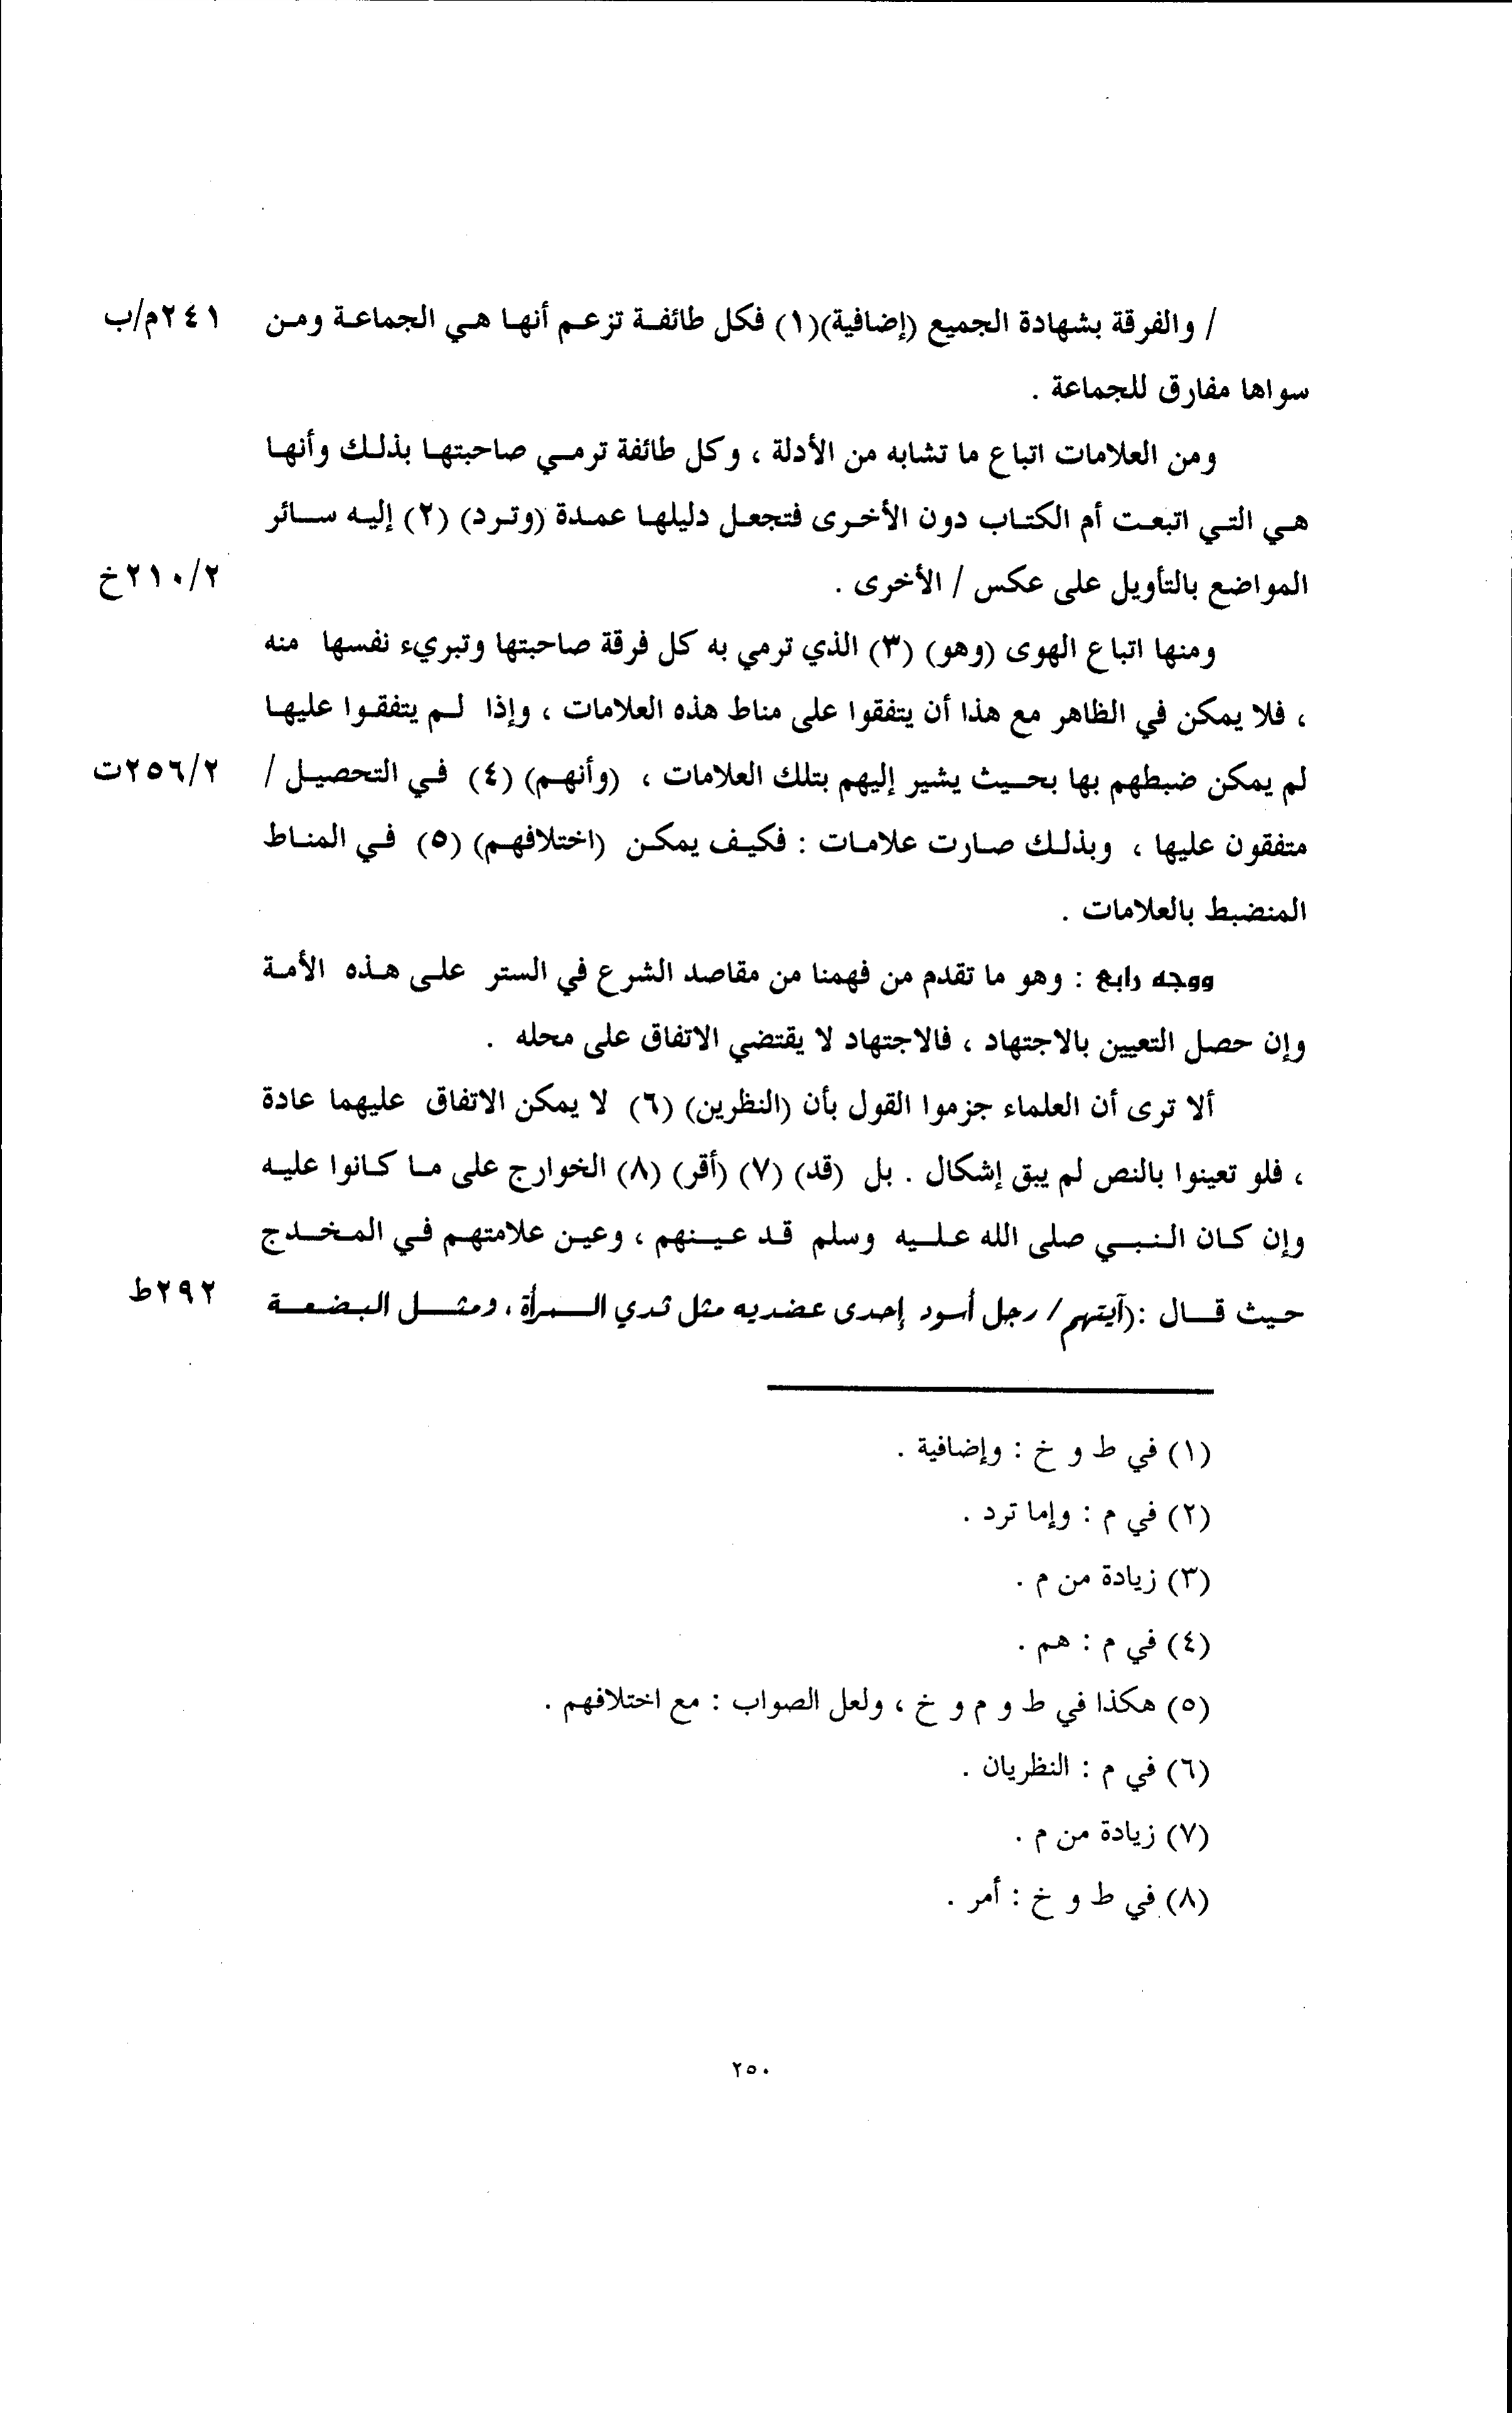 / والفرقة بشهادة الجميع (إضافية)(١) فكل طائفة تزعم أنها هي الجماعة ومن ٢٤١م/ب
سواها مفارق للجماعة .
ومن العلامات اتباع ما تشابه من الأدلة ، وكل طائفة ترمي صاحبتها بذلك وأنها
هي التي اتبعت أم الكتاب دون الأخرى فتجعل دليلها عمدة (وترد) (٢) إليه سائر
المواضع بالتأويل على عكس / الأخرى . ٢١٠/٢خ
ومنها اتباع الهوى (وهو) (٣) الذي ترمي به كل فرقة صاحبتها وتبريء نفسها منه
، فلا يمكن في الظاهر مع هذا أن يتفقوا على مناط هذه العلامات ، وإذا لم يتفقوا عليها
لم يمكن ضبطهم بها بحيث يشير إليهم بتلك العلامات ، (وأنهم) (٤) في التحصيل / ٢٥٦/٢ت
متفقون عليها ، وبذلك صارت علامات : فكيف يمكن (اختلافهم) (٥) في المناط
المنضبط بالعلامات .
ووجه رابع : وهو ما تقدم من فهمنا من مقاصد الشرع في الستر على هذه الأمة
وإن حصل التعيين بالاجتهاد ، فالاجتهاد لا يقتضي الاتفاق على محله .
ألا ترى أن العلماء جزموا القول بأن (النظرين) (٦) لا يمكن الاتفاق عليهما عادة
، فلو تعينوا بالنص لم يبق إشكال . بل (قد) (٧) (أقر) (٨) الخوارج على ما كانوا عليه
وإن كان النبي صلى الله عليه وسلم قد عينهم ، وعين علامتهم في المخدج
حيث قال :(آيتهم / رجل أسود إحدى عضديه مثل ثدي المرأة ، ومثل البضعة ٢٩٢ط
(١) في ط و خ : وإضافية .
(٢) في م : وإما ترد .
(٣) زيادة من م .
(٤) في م : هم .
(٥) هكذا في ط و م و خ ، ولعل الصواب : مع اختلافهم .
(٦) في م : النظريان .
(٧) زيادة من م .
(٨) في ط و خ : أمر .
٢٥٠